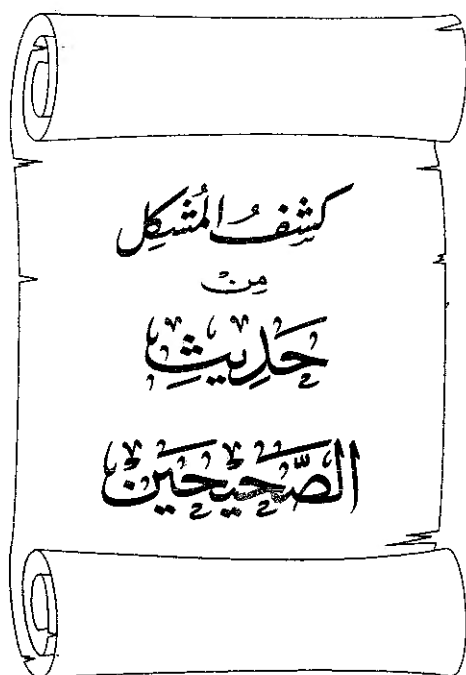 كشفُ المُشكِل
مِنْ
حَدِيثِ
الصَّحِيحَيْنِ